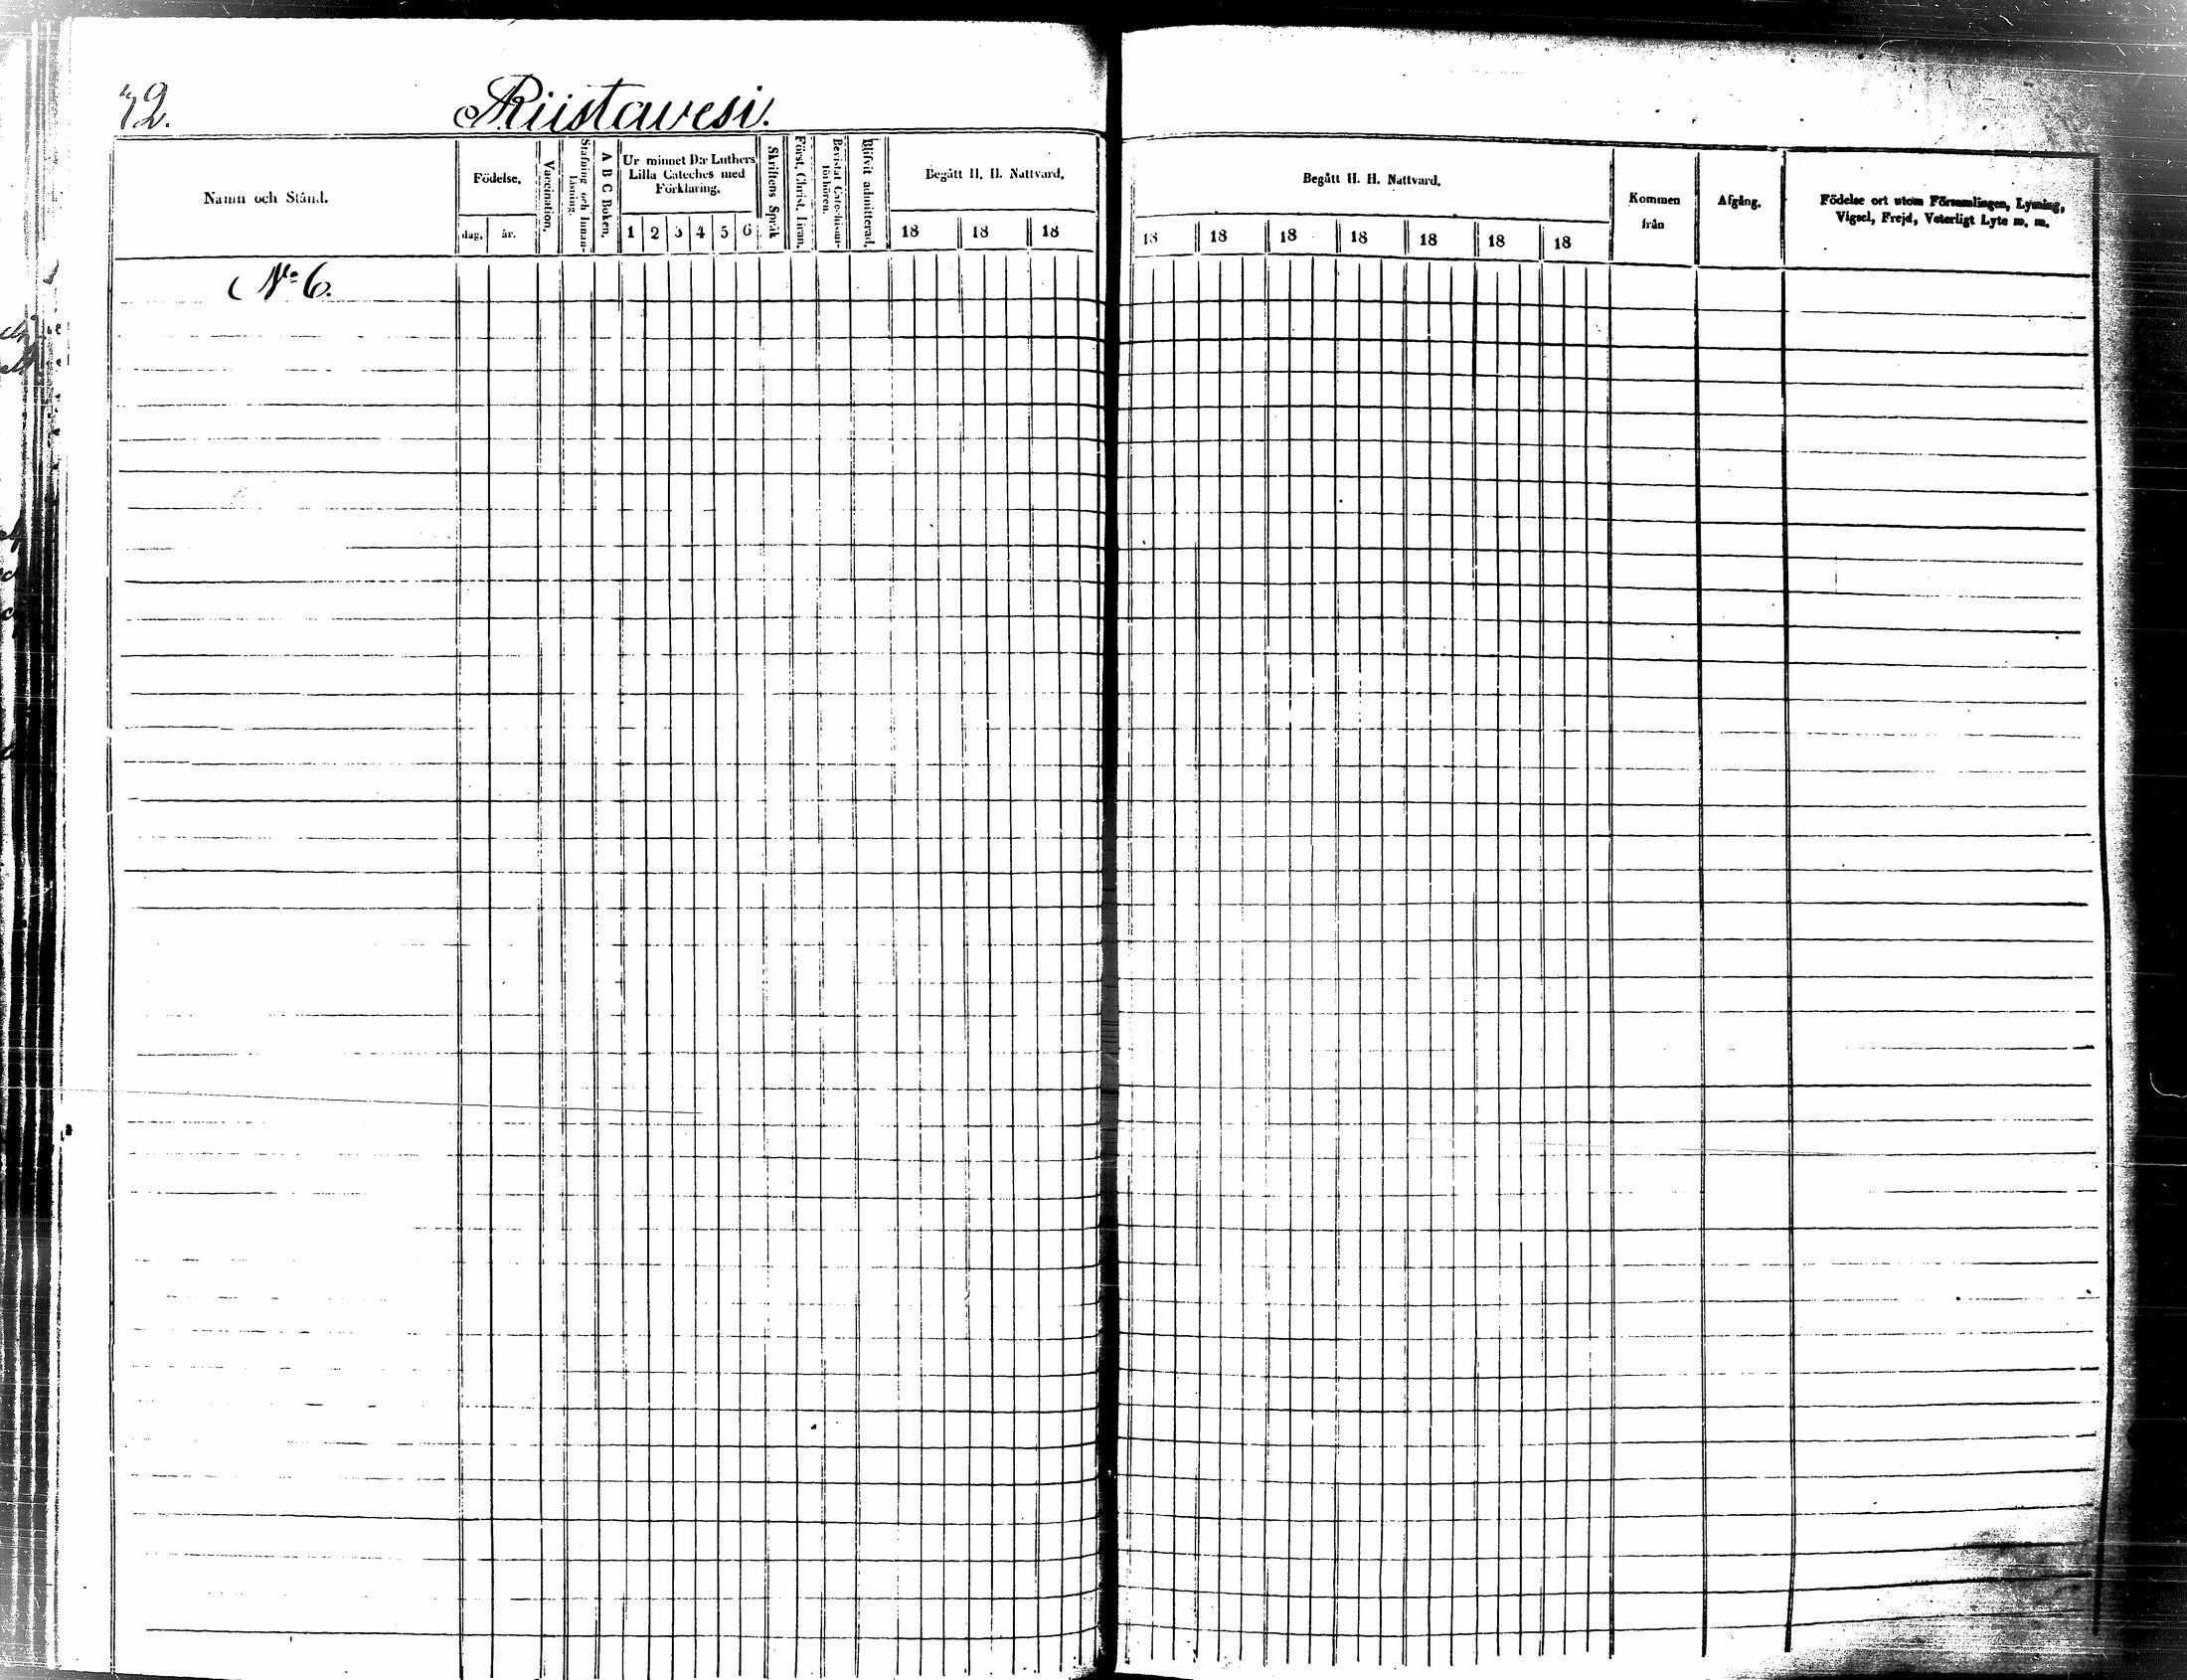 72.
Riistavesi.
Namn och Stånd.
Födelse.
dag.
år.
Vaccination.
Stafning och Innan-
läsning.
A B C Boken.
Ur minnet D:r Luthers
Lilla Cateches med
Förklaring.
1 2 3 4 5 6
Skriftens Språk
Först. Christ. Läran.
Bevistat Catechismi-
förhören.
Blifvit admitterad.
Begått H. H. Nattvard.
18 18 18
Begått H. H. Nattvard.
18 18 18 18 18 18 18
Kommen
från
Afgång.
Födelse ort utom Församlingen, Lysning,
Vigsel, Frejd, Veterligt Lyte m. m.
No 6.